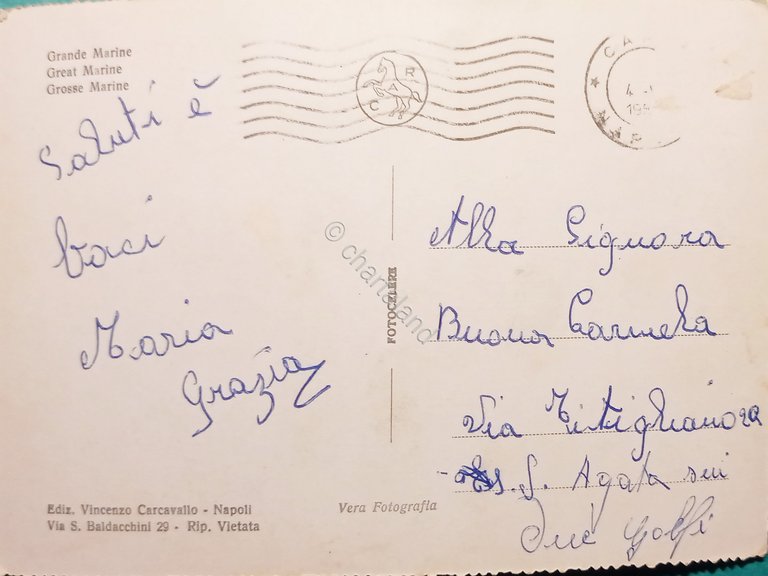 Grande Marine
Great Marine
Grosse Marine
Saluti è
baci
Maria
Grazia
Ediz. Vincenzo Carcavallo - Napoli
Via S. Baldacchini 29 - Rip. Vietata
Vera Fotografia
FOTOCELERE
© chartaland
C A R
CA
4
195
NAP
Alla Signora
Buona Carmela
Via Titigliano
S. Agata sui
Due Golfi